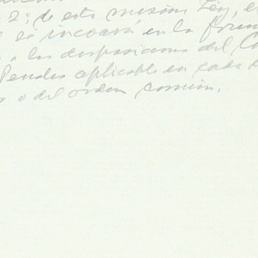 2; de esta misma Ley, e
se incoará en la form
a las disposiciones del C
Penales aplicable en cada
o del orden común.